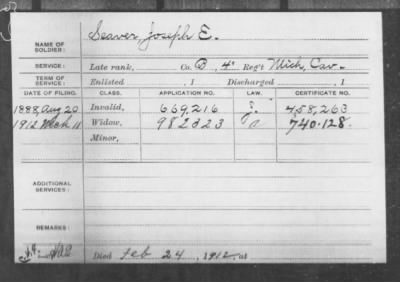 NAME OF SOLDIER: Seaver, Joseph E.
SERVICE: Late rank, Co. B, 4" Reg't Mich. Cav.
TERM OF SERVICE: Enlisted , 1 Discharged , 1
DATE OF FILING. CLASS. APPLICATION NO. LAW. CERTIFICATE NO.
1888, Aug 20 Invalid, 669,216 458,263
1912 Mch 11 Widow, 982323 740.128.
Minor,
ADDITIONAL SERVICES:
REMARKS:
Died Feb 24, 1912, at